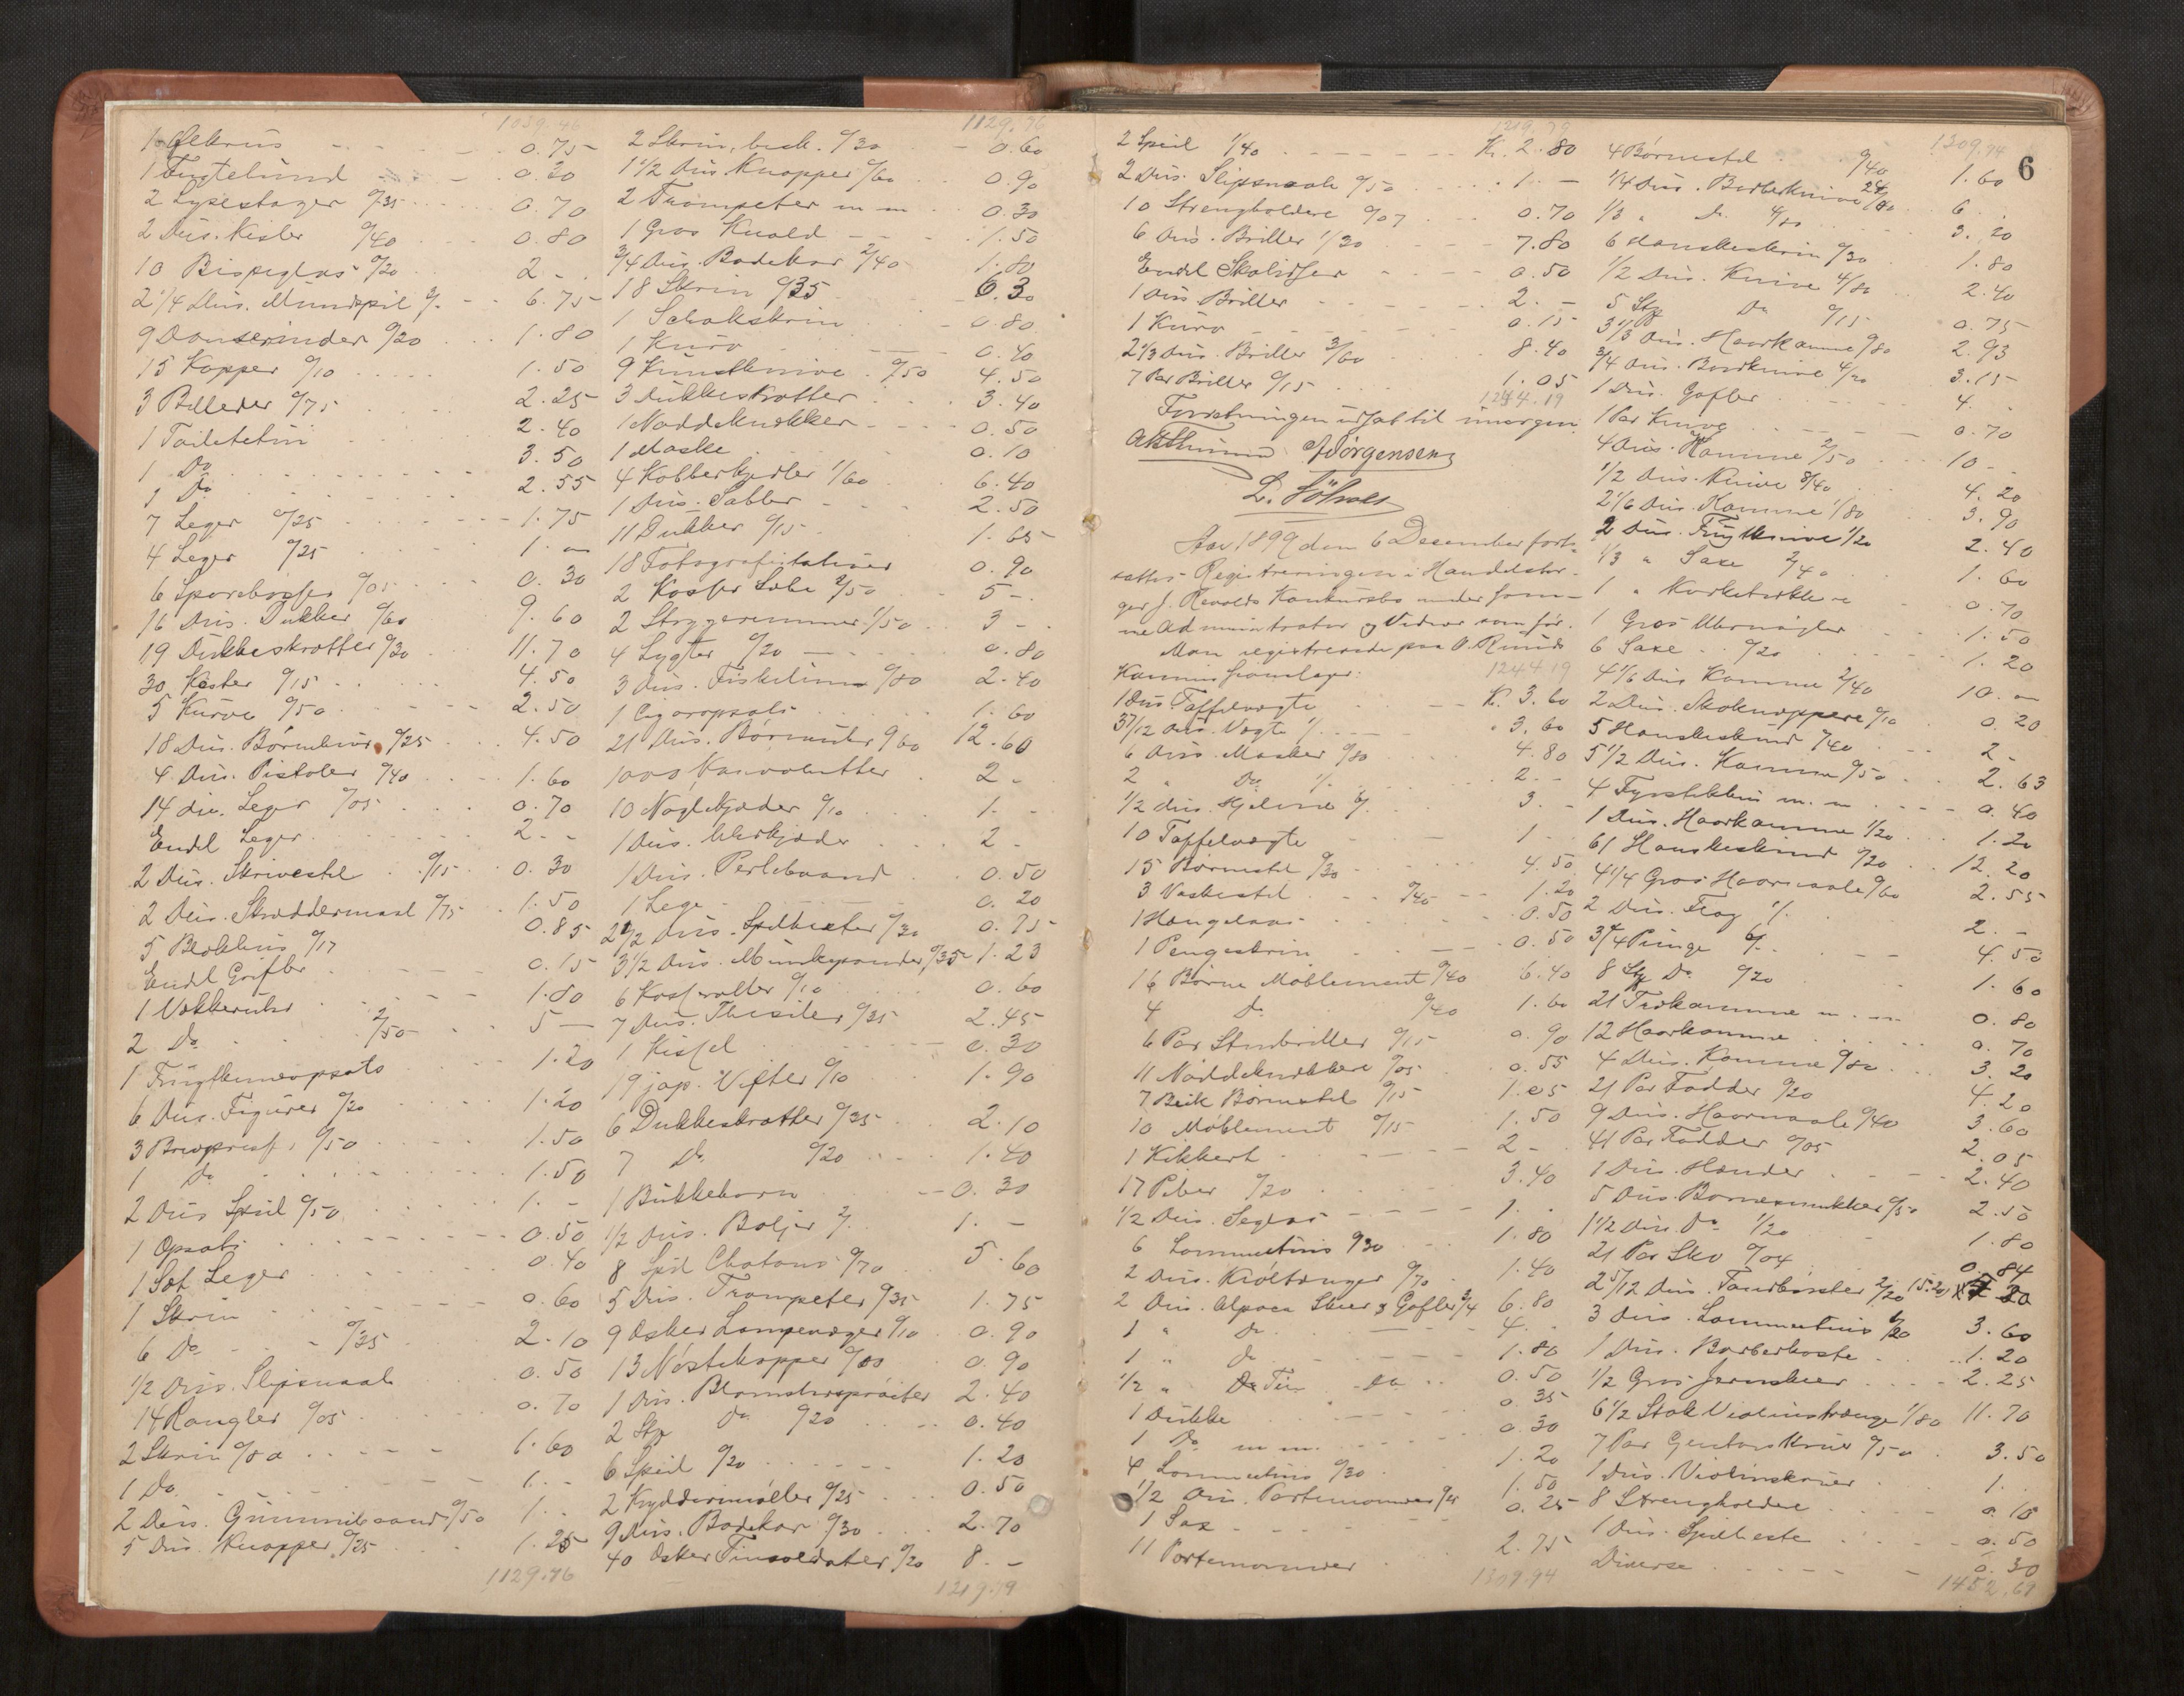 1039.46
1 Ølkrus 0.75
1 Fugtelund 0.30
2 Lysestager 0/35 0.70
2 Dus. Kister 0/40 0.80
10 Bispeglas 0/20 2 -
2 1/4 Dus. Mundspil 3/- 6.75
9 Danserinder 0/20 1.80
15 Kopper 0/10 1.50
3 Billeder 0/75 2.25
1 Toiletetui 2.40
1 Do 3.50
1 Do 2.55
7 Leger 0/25 1.75
4 Leger 0/25 1. -
6 Sparebøsser 0/05 0.30
16 Dus. Dukker 0/60 9.60
19 Dukkeskrotter 0/30 11.70
30 Kister 0/15 4.50
5 Kurve 0/50 2.50
18 Dus. Børneluv 0/25 4.50
4 Dus. Pistoler 0/40 1.60
14 div. Leger 0/05 0.70
Endl Leger 2 -
2 Dus. Skrivestel 0/15 0.30
2 Dus. Skræddermaal 0/75 1.50
5 Blækhus 0/17 0.85
Endl Grifler 0.15
1 Vækkeruhr 1.80
2 Do 2/50 5 -
1 Frugtknivopsats 1.20
6 Dus. Figurer 0/20 1.20
3 Brevpresse 0/50 1.50
1 Do 1.50
2 Dus Speil 0/50 1. -
1 Opsats 0.50
1 Sæt Leger 0.40
1 Skrin 0.60
6 Do 0/35 2.10
1/2 Dus. Slipsnaale 0.50
14 Rangler 0/05 0.70
2 Skrin 0/80 1.60
1 Do 1. -
2 Dus. Gummibaand 0/50 1. -
5 Dus. Knapper 0/25 1.25
1129.76
1129.76
2 Skrin, besk. 0/30 0.60
1 1/2 Dus Knapper 0/60 0.90
2 Trompeter m m 0.30
1 Gros Knald 1.50
3/4 Dus. Badekar 2/40 1.80
18 Skrin 0/35 6.30
1 Schakskrin 0.80
1 Kurv 0.40
9 Knive 0/50 4.50
3 Dukkeskrotter 3.40
1 Nøddeknækker 0.50
1 Maske 0.10
4 Kobberkjedler 1/60 6.40
1 Dus. Sabler 2.50
11 Dukker 0/15 1.65
18 Fotografistativer 0.90
2 Kasser Sæbe 2/50 5 -
2 Strygeremmer 1/50 3 -
4 Lygter 0/20 0.80
3 Dus. Fiskelim 0/80 2.40
1 Cigaropsats 1.60
21 Dus. Børneuhr 0/60 12.60
1000 Konvolutter 2 -
10 Nøglekjæder 0/10 1. -
1 Dus. Uhrkjæder 2 -
1 Dus. Perlebaand 0.50
1 Lege 0.20
2 1/2 Dus. Spilbester 0/30 0.75
3 1/2 Dus. Mundgrander 0/35 1.23
6 Kasseroller 0/10 0.60
7 Dus. Theskeer 0/35 2.45
1 Kissel 0.30
19 jap. Vifter 0/10 1.90
6 Dukkeskrotter 0/35 2.10
7 Do 0/20 1.40
1 Bukkehorn 0.30
1/2 Dus. Boljer 2/- 1. -
8 Spil Chatons 0/70 5.60
5 Dus. Trompeter 0/35 1.75
9 Æsker Lampevæger 0/10 0.90
13 Kopper 0.90
1 Dus. Blomstersprøiter 2.40
2 Stk do. 0/20 0.40
6 Speil 0/20 1.20
2 Kryddermøller 0/25 0.50
9 Dus. Badekar 0/30 2.70
40 Æsker Tinsoldater 0/20 8. -
1219.79
1219.79
2 Speil 1/40 Kr. 2.80
2 Dus. Slipsnaale 0/50 1. -
10 Strengholdere 0/07 0.70
6 Dus. Briller 1/30 7.80
Endel Skolisser 0.50
1 Dus Briller 2. -
1 Kurv 0.15
2 1/3 Dus. Briller 3/60 8.40
7 Par Briller 0/15 1.05
1244.19
Forretningen udsat til imorgen.
Jørgensen
Aar 1899 den 6 Desember fort-
sattes Registreringen i Handelsbor-
ger J. Revolds Konkursbo under sam-
me Administrator og Vidner som før.
Man registrerede paa O. Runds
Kommissionslager: 1244.19
1 Dus Taffelvægte K. 3.60
3 7/12 Dus. Vægte 1/- 3.60
6 Dus. Masker 0/80 4.80
2 " Do 1/- 2. -
1/2 dus. Hjelme 6/- 3. -
10 Taffelvægte 1 -
15 Børnestel 0/30 4.50
3 Vaskestel 0/40 1.20
1 Hængelaas 0.50
1 Pengeskrin 0.50
16 Børne Møblement 0/40 6.40
4 Do 0/40 1.60
6 Par Støvbriller 0/15 0.90
11 Nøddeknækkere 0/05 0.55
7 Beik Børnestel 0/15 1.05
10 Møblement 0/15 1.50
1 Kikkert 2 -
17 Piber 0/20 3.40
1/2 Dus. Seglas 1. -
6 Lommeetuis 0/30 1.80
2 Dus. Krøltænger 0/70 1.40
2 Dus. Alpaca Skeer & Gafler 3/4 6.80
1 " Do 4. -
1 " do 1.80
1/2 " Do Tin do 0.50
1 Dukke 0.35
1 Do m m. 0.30
4 Lommeetuis 0/30 1.20
1/2 Dus. Portemonnaer 1.50
1 Sax 0.25
11 Portemonnaer 2.75
1309.94
1309.94
6
4 Børnestel 0/40 1.60
1/4 Dus. Barberknive 24/00 6 .
1/3 " Do 3.20
6 Hanskeskrin 0/30 1.80
1/2 Dus. Knive 4/80 2.40
5 Stk Do 0/15 0.75
3 1/3 Dus. Haarkamme 0/80 2.93
3/4 Dus. Bordknive 4/20 3.15
1 Dus. Gafler 4. -
1 Par Kurve 0.70
4 Dus. Kamme 2/50 10 -
1/2 Dus. Knive 8/40 4.20
2 1/6 Dus. Kamme 1/80 3.90
2 Dus. Frugtknive 1/20 2.40
1/3 " Saxe 2/40 1.60
1 " Korketrækkere 0.70
1 Gros Uhrnøgler 1.50
6 Saxe 0/20 1.20
4 1/6 Dus Kamme 2/40 10. -
2 Dus. Skoknæppere 0/10 0.20
5 Hanskeskind 0/40 2 -
5 1/2 Dus. Kamme 0/50 2.63
4 Fyrstikhus m. m 0.40
1 Dus. Haarkamme 1/20 1.20
61 Hanskeskind 0/20 12.20
4 1/4 Gros Haarnaale 0/60 2.55
2 Dus. Flag 1/- 2. -
3/4 Punge 6/- 4.50
8 Stk Do 0/20 1.60
21 Trækamme m. m 0.80
12 Haarkamme 0.70
4 Dus. Kamme 0/80 3.20
21 Par Fødder 0/20 4.20
9 Dus. Haarnaale 0/40 3.60
41 Par Fødder 0/05 2.05
1 Dus. Hænder 2.40
5 Dus. Børnesmukker 0/50 2.50
1 1/2 Dus. Do 1/20 1.80
21 Par Sko 0/04 0.84
2 5/12 Dus. Tandbørster 2/20 (5.20)
3 Dus. Lommeetuis 1/20 3.60
1 Dus. Barberkoste 1.20
1/2 Gros Jernskeer 2.25
6 1/2 Stok Violinstrænge 1/80 11.70
7 Par Guitarskruer 0/50 3.50
1 Dus. Violinskruer 1. -
8 Strengholdere 0.10
1 Dus. Spilleste 0.50
Diverse 0.30
1452.69